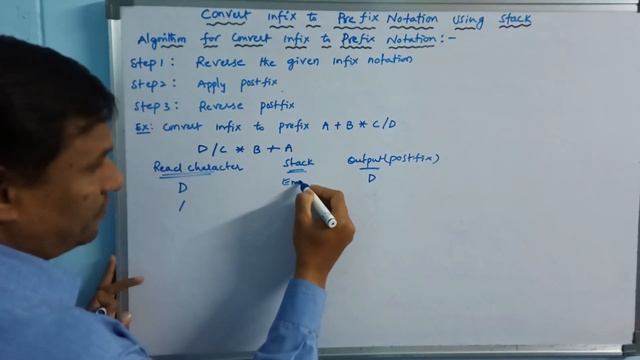 Convert Infix to Prefix Notation Using Stack
Algorithm for Convert Infix to Prefix Notation:-
Step1: Reverse the given infix notation
Step2: Apply postfix
Step3: Reverse postfix
Ex: Convert infix to prefix A+B*C/D
D/C * B + A
Read character Stack Output(postfix)
D Em D
/